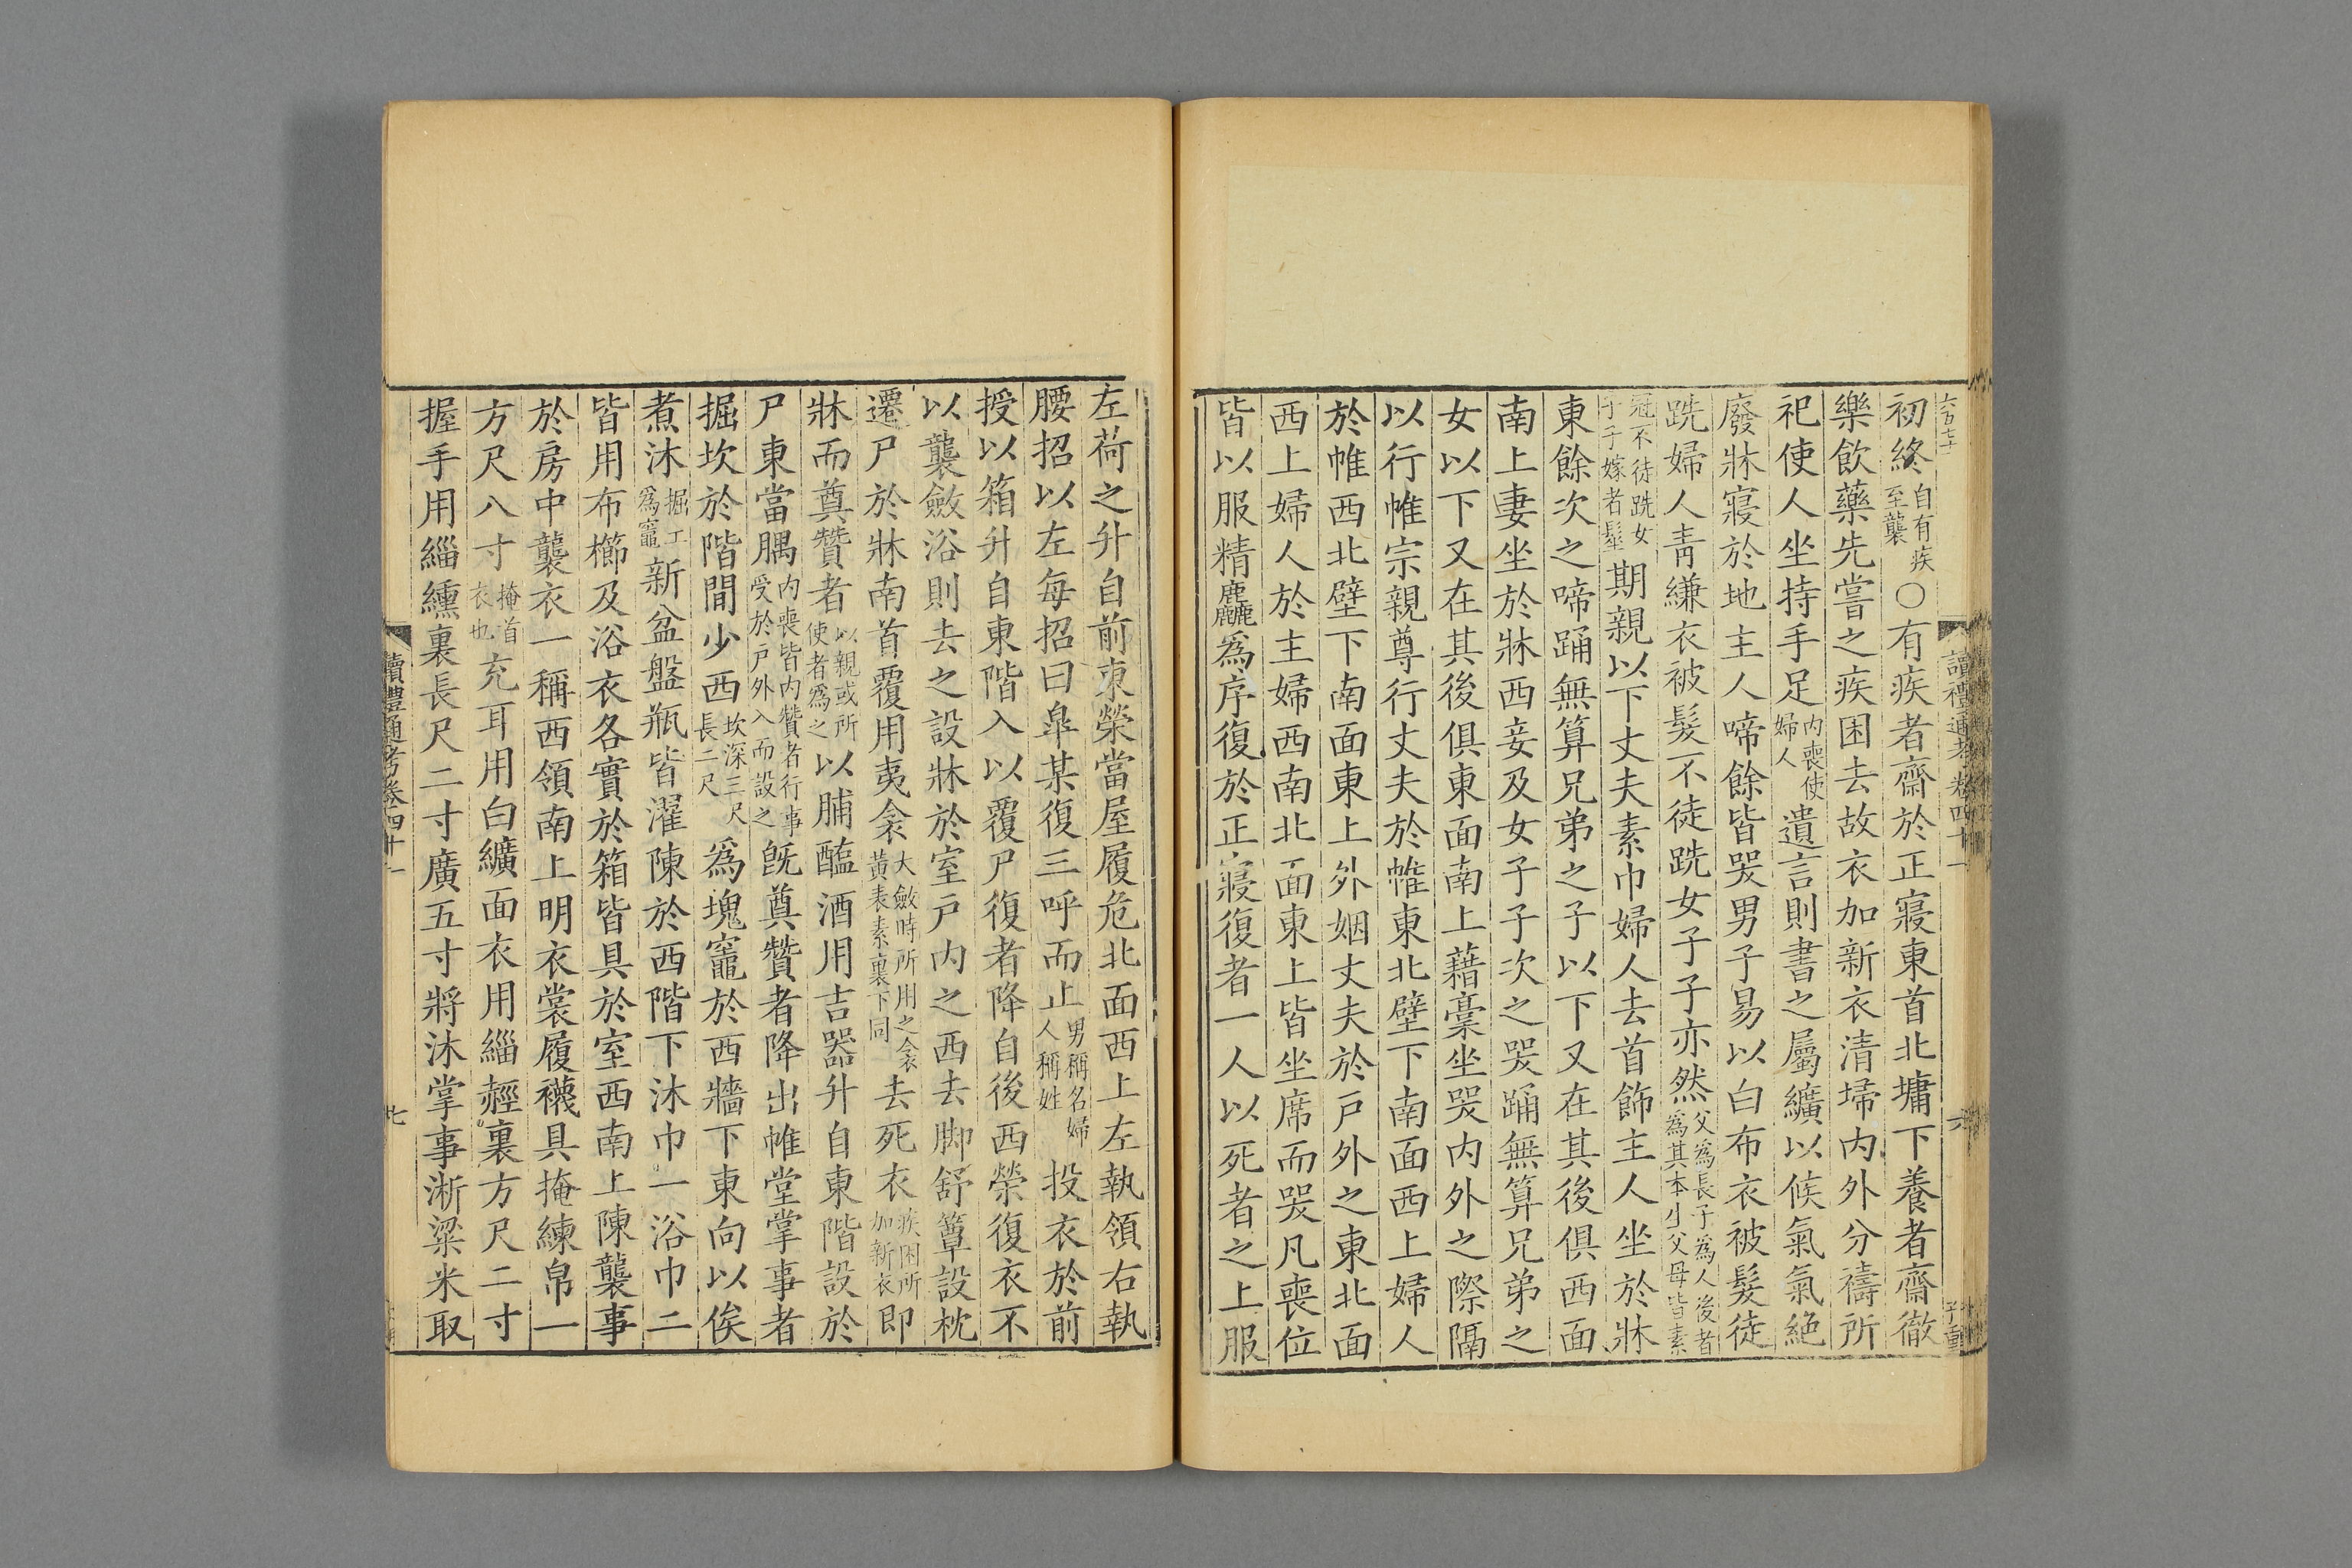 六百七十
讀禮通考卷四十一
六
初終自有疾至襲○有疾者齋於正寢東首北墉下養者齋徹
樂飲藥先嘗之疾困去故衣加新衣清埽内外分禱所
祀使人坐持手足内喪使婦人遺言則書之屬纊以候氣氣絶
廢牀寢於地主人啼餘皆哭男子易以白布衣被髮徒
跣婦人青縑衣被髮不徒跣女子子亦然父爲長子爲人後者爲其本生父母皆素
冠不徒跣女子子嫁者髽期親以下丈夫素巾婦人去首飾主人坐於牀
東餘次之啼踊無算兄弟之子以下又在其後俱西面
南上妻坐於牀西妾及女子子次之哭踊無算兄弟之
女以下又在其後俱東面南上藉藁坐哭内外之際隔
以行帷宗親尊行丈夫於帷東北壁下南面西上婦人
於帷西北壁下南面東上外姻丈夫於戸外之東北面
西上婦人於主婦西南北面東上皆坐席而哭凡喪位
皆以服精麤爲序復於正寢復者一人以死者之上服
左荷之升自前東榮當屋履危北面西上左執領右執
腰招以左每招曰臯某復三呼而止男稱名婦人稱姓投衣於前
授以箱升自東階入以覆尸復者降自後西榮復衣不
以襲斂浴則去之設牀於室戸内之西去脚舒簟設枕
遷尸於牀南首覆用夷衾大斂時所用之衾黃表素裏下同去死衣疾困所加新衣即
牀而奠贊者以親或所使者爲之以脯醢酒用吉器升自東階設於
尸東當腢内喪皆内贊者行事受於戸外入而設之旣奠贊者降出帷堂掌事者
掘坎於階間少西坎深三尺長二尺爲塊竈於西牆下東向以俟
煮沐掘工爲竈新盆盤瓶皆濯陳於西階下沐巾一浴巾二
皆用布櫛及浴衣各實於箱皆具於室西南上陳襲事
於房中襲衣一稱西領南上明衣裳履襪具掩練帛一
方尺八寸掩首衣也充耳用白纊面衣用緇赬裏方尺二寸
握手用緇纁裏長尺二寸廣五寸將沐掌事淅粱米取
讀禮通考卷四十一
七